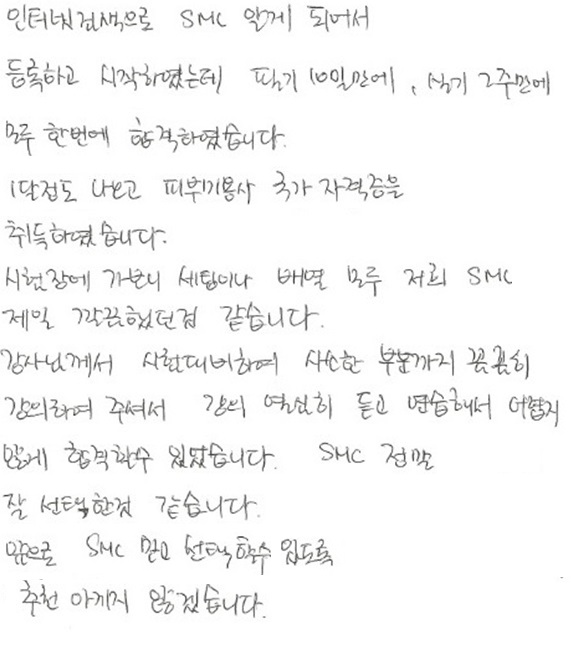 인터넷검색으로 SMC 알게 되어서
등록하고 시작하였는데 필기 10일만에, 실기 2주만에
모두 한번에 합격하였습니다.
1달정도 나오고 피부미용사 국가 자격증을
취득하였습니다.
시험장에 가보니 세팅이나 배열 모두 저희 SMC
제일 깔끔했던것 같습니다.
강사님께서 시험대비하여 사소한 부분까지 꼼꼼히
강의하여 주셔서 강의 열심히 듣고 연습해서 어렵지
않게 합격할수 있었습니다. SMC 정말
잘 선택한것 같습니다.
앞으로 SMC 믿고 선택할수 있도록
추천 아끼지 않겠습니다.